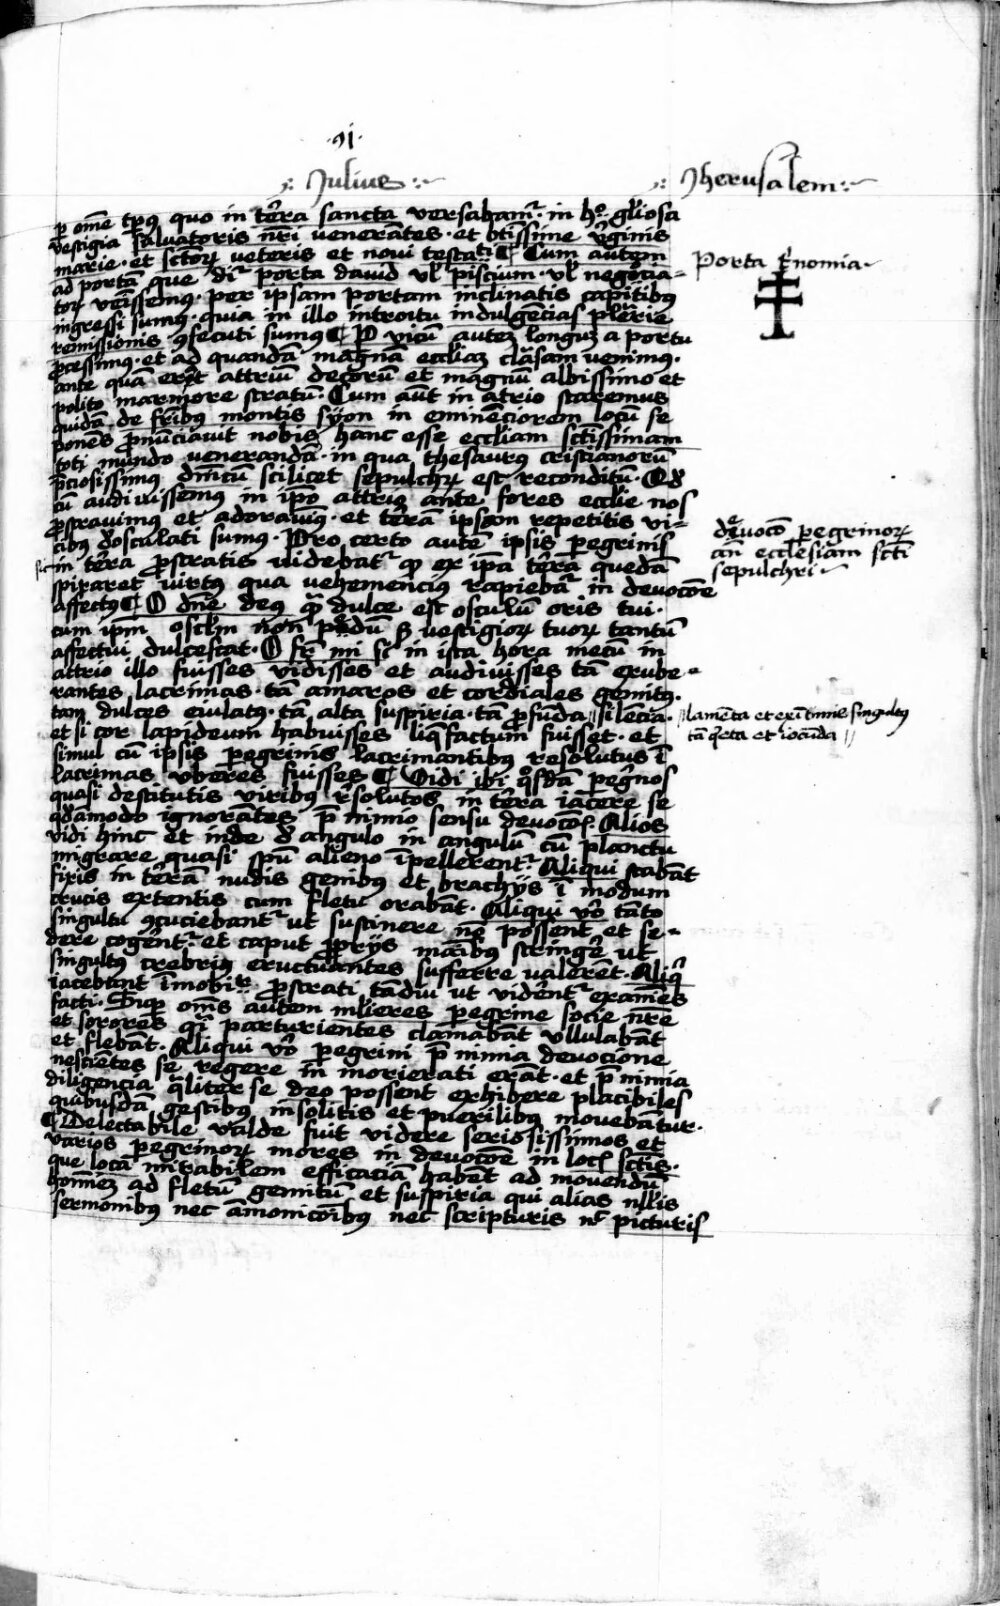 ·91·
Julius
Jherusalem
ꝑ om̄e tp̄us quo in terra sancta versabamur. in ho. gl̄iosa
vestigia salvatoris nr̄i venerantes. et btīssime v̄ginis
marie. et sctōꝝ veteris et novi testati ¶ Cum autem
ad portā que dr̄ porta david vl̄ pisciūm. vl̄ negōcia=
toꝝ venissemus. per ipsam portam inclinatis capitibus
ingressi sumus. quia in illo introitu indulgēcias plēnrie
remissionis ꝯsecuti sumus ¶ Per vicū autem longuꝫ a portu
ꝓcessimus. et ad quandā magnā eccliaꝫ clāsam venimus.
ante quā erat attriū decorū et magnū albissimo et
polito marmore stratū. Cum aūt in atrio staremus
quidā de frībus montis syon in eminēciorem locū se
ponens ꝓnūciavit nobis hanc esse eccliam sctīssimam
toti mundo venerandā. in qua thesaurus cristianorū
p̄ciosissimus dn̄icū scilicet sepulchꝝ est reconditū. Qd
cū audivissemus in ip̄o attrio ante fores ecclie nos
ꝓstravimus et adoravimus. et terā ipsam repetitis vi=
cibus deosculati sumus. Pro certo autē ipsis peg̃rinis
in tērā ꝓstratis videbatur ꝙ ex ip̄a terā quedā
spiraret virtus qua vehemēcius rapiebāt in devocōe
affectus ¶ O dn̄e deus q̄ dulce est osculū oris tui.
cum ip̄m oscl̄m non p̄dū sꝫ vestigioꝝ tuoꝝ tantū
affectui dulcescat. O fr̄ mi si in ista hora mecū in
attrio illo fuisses vidisses et audivisses tā exube=
rantes lacrimas. tā amaros et cordiales gemitus.
tam dulces eiulatus. tā alta suspiria. tā ꝓfūda // silēcia.
et si cor lapideum habuisses liq̄factum fuisset. et
simul cū ipsis peg̃rinis lacrimantibus resolutus ī
lacrimas vberes fuisses ¶ Vidi ibi qōsdā peg̃nos
quasi destitutis viribus r̄solutos in tērā iācere se
qd̄āmodo ignorātes p̄ nimio sensu devocōis. Alios
vidi hinc et inde d̄ angulo in angulū cū planctu
migrare quasi spū alieno īpellerent̄. Aliqui stabāt
fixis in tērā nudis genibus et brachijs ī modum
crucis extentis cum fletu orabāt. Aliqui v̄o tāto
singultu ꝯcuciebant̄ ut sustinere nō possent et se=
dere cogerēt̄. et caput ꝓprijs manibus stringere ut
singultus crebrius eructuantes sufferre valerēt. Aliqui
iacebant īmobiles ꝓstrati tādiu ut vidērent̄ exanies
facti. Super om̄s autem mlīeres peg̃rine socie nr̄e
et sorores q̄si parturientes clāmabāt vllulabāt
et flebāt. Aliqui v̄o peg̃rini p̄ nimia devocione
nescientes se regere in morierati erāt. et p̄ nimia
diligencia q̄liter se deo possent exhibere placibiles
quibusdā gestibus insolitis et puerilibus movebātur.
¶ Delectabile valde fuit videre seriosissimos et
varios peg̃rinoꝝ mores in devocōe in locis sctīs.
que loca mirabilem efficaciā habēt ad movendū
hominēꝫ ad fletū gemitū et suspiria qui alias nllīs
sermonibus nec amonicōibus nec scripturis nc̄ picturis
Porta Ernomia
devocō peg̃rinoꝝ
an̄ ecclesiam sctī
sepulchri
//lamēta et exītunie singultus
tā q̄eta et iocūda //